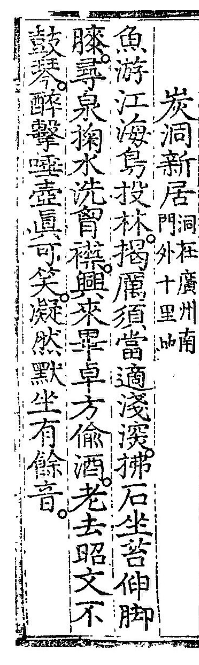 炭洞新居洞在廣州南門外十里內
魚游江海鳥投林。揭厲須當適淺深。拂石坐苔伸脚
膝。尋泉掬水洗胷襟。興來畢卓方偷酒。老去昭文不
鼓琴。醉擊唾壺眞可笑。凝然默坐有餘音。